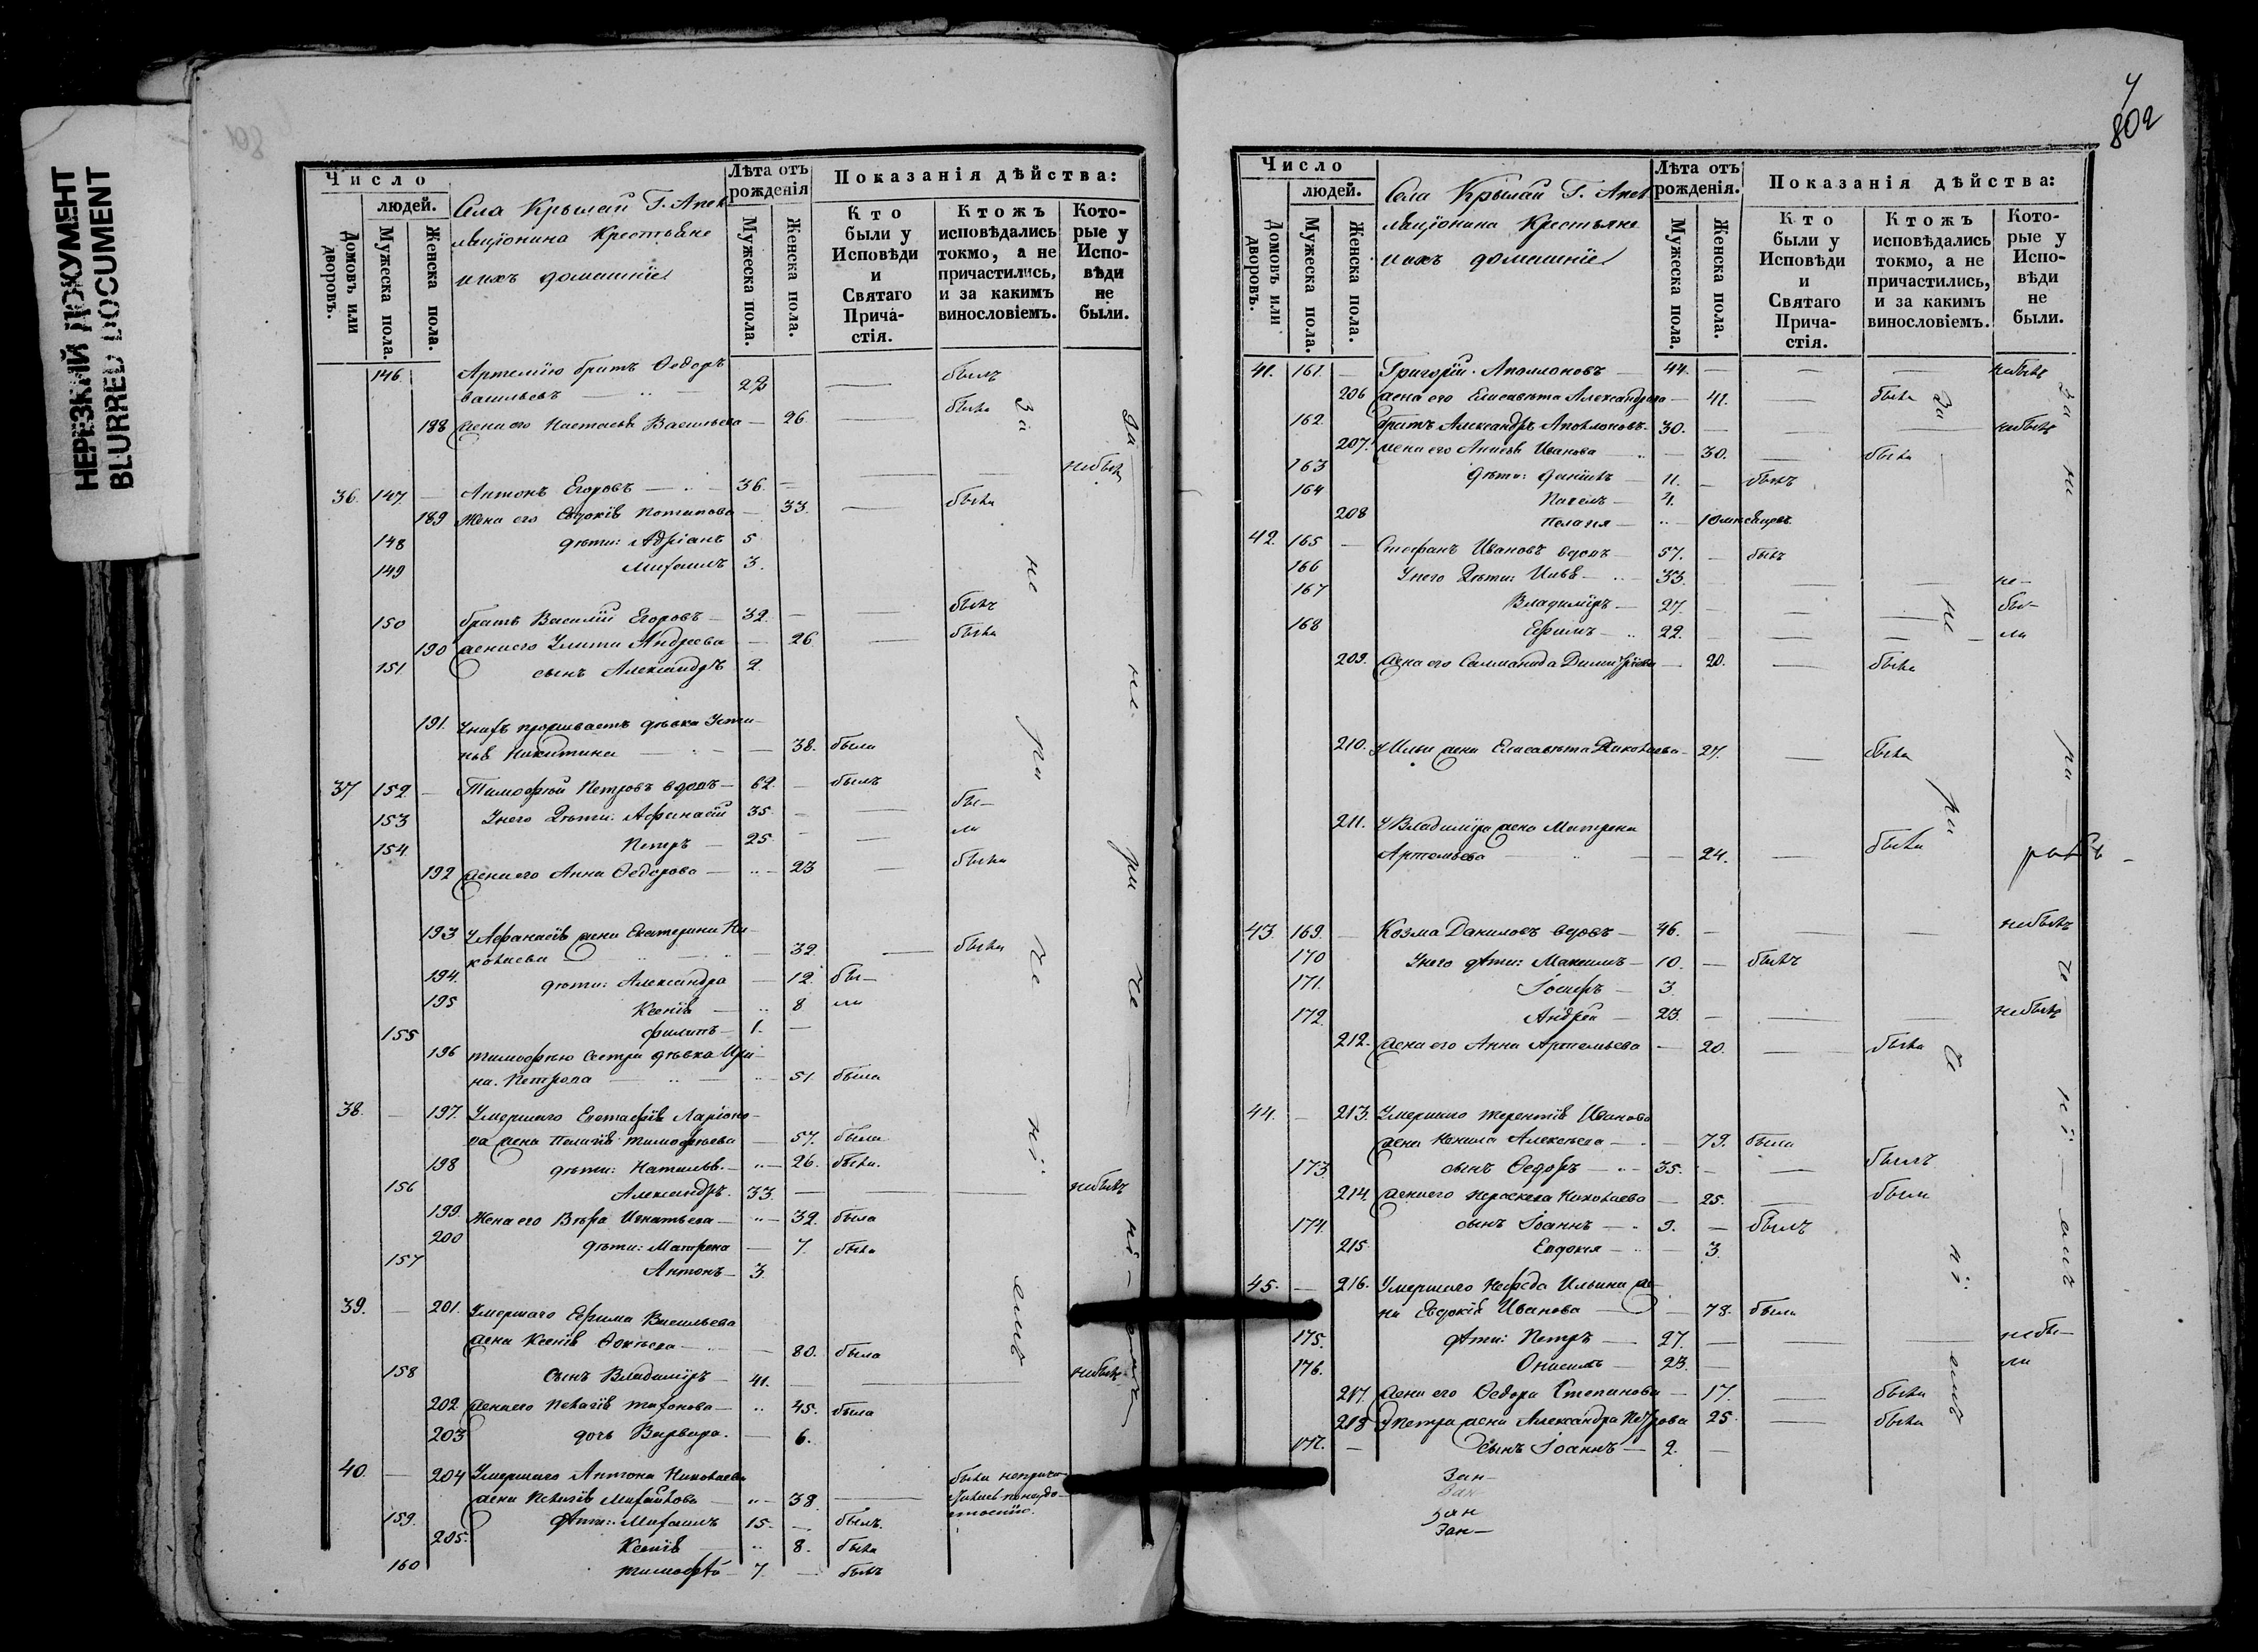 НЕРЕЗКИЙ ДОКУМЕНТ
BLURRED DOCUMENT
Число
людей.
Домовъ или дворовъ.
Мужеска пола.
Женска пола.
Села Крылай Г.
Крестьяне
ихъ домашніе
Лѣта отъ рожденія
Мужеска пола.
Женска пола.
Показанія дѣйства:
Кто были у Исповѣди и Святаго Прича-стія.
Ктожъ исповѣдались токмо, а не причастились, и за какимъ винословіемъ.
Кото-рые у Испо-вѣди не были.
146. Артемію братъ Ѳедоръ
Васильевъ — 28 — былъ
188 жена его Настасья Васильева — 26 — была
36. 147 — Антонъ Егоровъ — 36. — небылъ
189 Жена его Евдокія Потапова — 33. — была
148 дѣти: Адріанъ 5
149 Михаилъ 3.
150 братъ Василій Егоровъ — 32. — былъ
190 жена его Улита Андреева — 26 — была
151 сынъ Александръ 2.
191. Унихъ проживаетъ дѣвка Усти-
нья Никитина — 38. была
37 152 — Тимофей Петровъ вдовъ — 62. — былъ
153 Унего дѣти: Афанасій 35. — бы-
154 Петръ — 25 — ли
192 жена его Анна Ѳедорова — 23 — была
193 У Афанасія жена Екатерина Ни-
колаева — 32. — была
194. дѣти: Александра — 12. бы-
195 Ксенія — 8 ли
155 Филипъ — 1. —
196 Тимофею сестра дѣвка Ири-
на Петрова — 51 была
38. — 197. Умершаго Евстафія Ларіоно-
ва жена Пелагія Тимофеева — 57. была
198 дѣти: Наталья — 26. была.
156 Александръ. 33. — небылъ
199. Жена его Вѣра Игнатьева — 32. была
200 дѣти: Матрена — 7. была
157 Антонъ — 3
39. — 201. Умершаго Ефима Васильева
жена Ксенія Фокеева — 80. была
158 Сынъ Владиміръ — 41. — небылъ
202. жена его Пелагія — 45. была
203 дочь Варвара. — 6.
40. — 204 Умершаго Антона Николаева
жена Пелагія Михайлова — 38. — была неприча-
159. дѣти: Михаилъ 15. — былъ.
205. Ксенія — 8. была
160 Тимофей — 7. — былъ
за не ра че ні емъ
за не ра че ні емъ
802
Число
людей.
Домовъ или дворовъ.
Мужеска пола.
Женска пола.
Села Крылай Г.
Крестьяне
ихъ домашніе
Лѣта отъ рожденія.
Мужеска пола.
Женска пола.
Показанія дѣйства:
Кто были у Исповѣди и Святаго Прича-стія.
Ктожъ исповѣдались токмо, а не причастились, и за какимъ винословіемъ.
Кото-рые у Испо-вѣди не были.
41. 161. — Григорій Аполлоновъ — 44. — небылъ
206 жена его Елисавета Александрова — 41. — была
162. братъ Александръ Аполлоновъ — 30. — небылъ
207. жена его Анисья Иванова — 30. — была
163 дѣти: Даніилъ — 11. — былъ
164 Павелъ — 4.
208 Пелагія — 10 месяцевъ.
42. 165 — Стефанъ Ивановъ вдовъ — 57. — былъ
166 Унего дѣти: Илья — 33. — не-
167 Владиміръ — 27. — бы-
168 Ефимъ — 22. — ли
209. жена его Саломанида Димитріева — 20. — была
210. У Ильи жена Елисавета Николаева — 27. — была
211. У Владиміра жена Матрена
Артемьева — 24. — была
43. 169. — Козма Даниловъ вдовъ — 46. — небылъ
170 Унего дѣти: Максимъ — 10. — былъ
171. Іосифъ — 3.
172. Андрей — 23. — небылъ
212. жена его Анна Артемьева — 20. — была
44. — 213. Умершаго Терентія Иванова
жена Алексеева — 79. была
173 сынъ Ѳедоръ — 35. — былъ
214. жена его Параскева Николаева — 25. — была
174. сынъ Іоаннъ — 9. — былъ
215. Евдокія — 3.
45. — 216. Умершаго Нефеда Ильина же-
на Евдокія Иванова — 78. была
175. дѣти: Петръ — 27. — небы-
176. Онисимъ — 23. — ли
217. жена его Ѳедора Степанова — 17. — была
218 У Петра жена Александра Петрова 25. — была
177. — Сынъ Іоаннъ — 2. —
за не ра че ні емъ
за не ра че ні емъ
Зан-
Зан-
Зан
Зан-